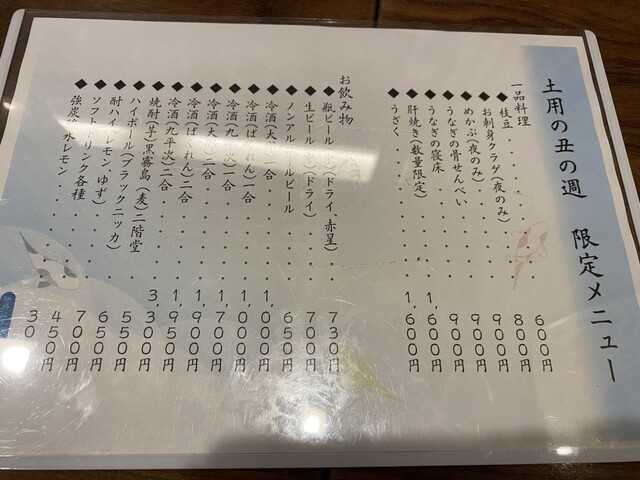 土用の丑の週 限定メニュー
一品料理
◆枝豆・・・・・・・600円
◆お刺身クラゲ(夜のみ)・・・800円
◆めかぶ(夜のみ)・・・900円
◆うなぎの骨せんべい・・・900円
◆うなぎの寝床・・・・900円
◆肝焼き(数量限定)・・・1,600円
◆うざく・・・・・・1,600円
お飲み物
◆瓶ビール(ドライ、赤星)・730円
◆生ビール(ドライ)・・・700円
◆ノンアルコールビール・・・650円
◆冷酒 一合・・・1,000円
◆冷酒(ばくれん)一合・・・1,000円
◆冷酒(九 一合・・・1,700円
◆冷酒(大 二合・・・1,900円
◆冷酒(ばくれん)二合・・・1,950円
◆冷酒(九平次)二合・・・3,300円
◆焼酎(芋)黒霧島(麦)二階堂・550円
◆ハイボール(ブラックニッカ)・650円
◆酎ハイ(レモン、ゆず)・・・700円
◆ソフトドリンク各種・・・450円
◆強炭 水レモン・・・30